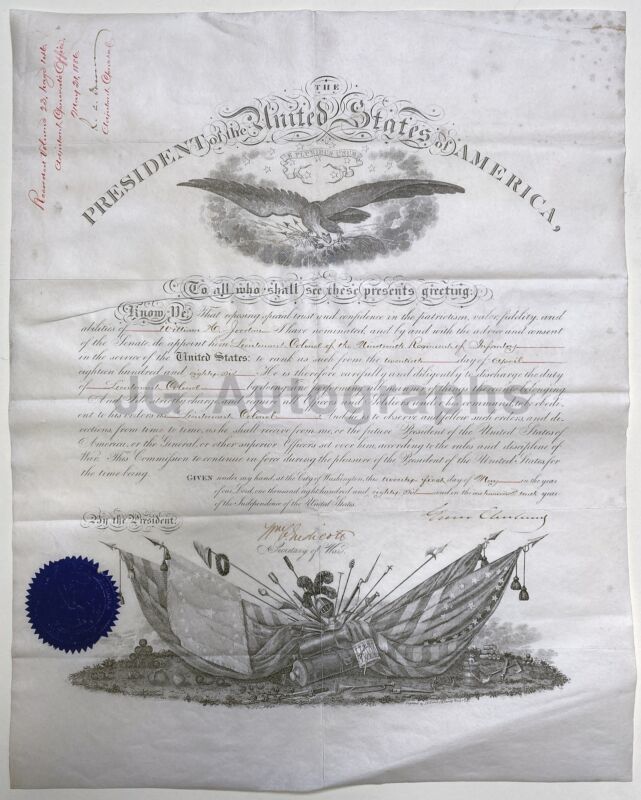 Recorded Volume 22, page 156
Adjutant General's Office,
May 21, 1886
Adjutant General
THE
PRESIDENT of the United States of AMERICA,
E PLURIBUS UNUM
To all who shall see these presents greeting:
Know Ye, That reposing special trust and confidence in the patriotism, valor, fidelity, and
abilities of William H. Jordan I have nominated, and by and with the advice and consent
of the Senate, do appoint him Lieutenant Colonel of the Nineteenth Regiment of Infantry
in the service of the United States: to rank as such from the twentieth day of April
eighteen hundred and eighty six. He is therefore carefully and diligently to discharge the duty
of Lieutenant Colonel by doing and performing all manner of things thereunto belonging.
And I do strictly charge and require all Officers and Soldiers under his command to be obedi-
ent to his orders as Lieutenant Colonel. And he is to observe and follow such orders, and di-
rections, from time to time, as he shall receive from me, or the future President of the United States of
America, or the General or other superior Officers set over him, according to the rules and discipline of
War. This Commission to continue in force during the pleasure of the President of the United States, for
the time being.
GIVEN under my hand at the City of Washington, this twenty first day of May in the year
of our Lord one thousand eight hundred and eighty six and in the one hundred and tenth year
of the Independence of the United States.
By the President:
Grover Cleveland
Wm C Endicott
Secretary of War.
JG Autographs